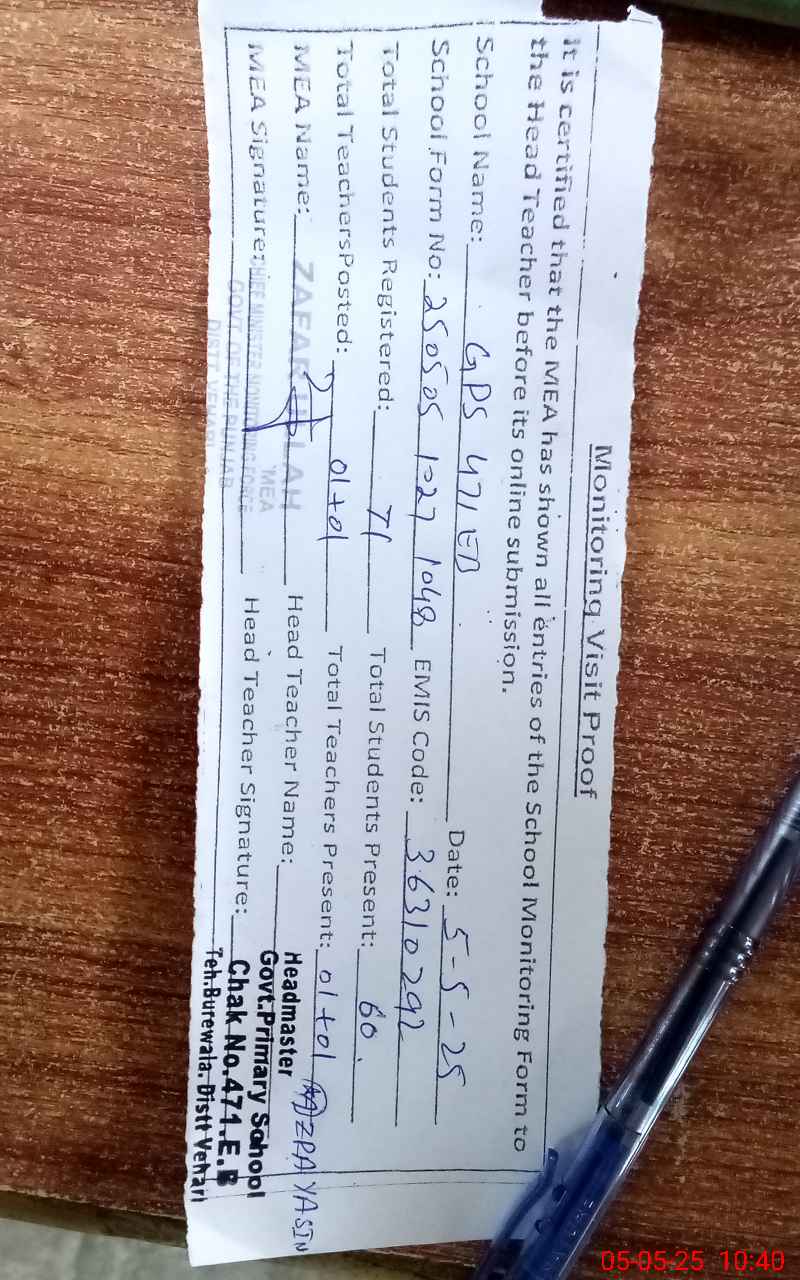 Monitoring Visit Proof
It is certified that the MEA has shown all entries of the School Monitoring Form to
the Head Teacher before its online submission.
School Name: GPS 471 EB Date: 5-5-25
School Form No: 250505 1027 1048 EMIS Code: 36310292
Total Students Registered: 71 Total Students Present: 60
Total TeachersPosted: 01+01 Total Teachers Present: 01+01
MEA Name: ZAFAR ULLAH Head Teacher Name: YASIN
MEA
MEA Signature: CHIEF MINISTER MONITORING FORCE Head Teacher Signature:
GOVT. OF THE PUNJAB
DISTT. VEHARI
Headmaster
Govt.Primary School
Chak No.471.E.B
Teh.Burewala. Distt Vehari
05-05-25 10:40